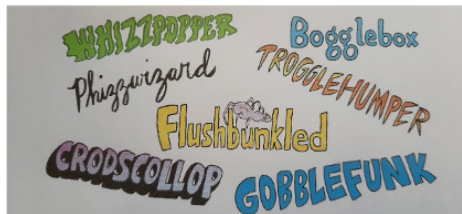 WHIZZPOPPER
Bogglebox
Phizzwizard
TROGGLEHUMPER
Flushbunkled
CRODSCOLLOP
GOBBLEFUNK